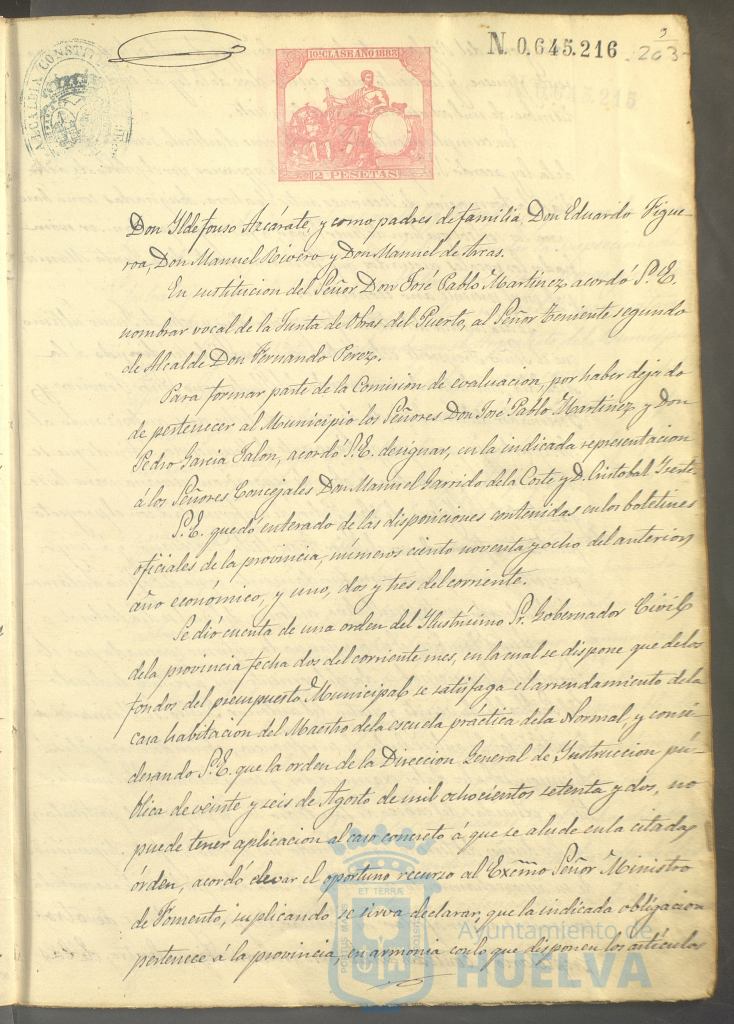 ALCALDIA CONSTIT
10ª CLASE AÑO 1883
2 PESETAS
N. 0.645.216
203
Don Yldefonso Azcárate, y como padres de familia, Don Eduardo Figue-
roa, Don Manuel Rivero y Don Manuel de Arcas.
En sustitucion del Señor Don José Pablo Martinez, acordó S.E.
nombrar vocal de la Junta de Obras del Puerto, al Señor Teniente segundo
de Alcalde Don Fernando Perez.
Para formar parte de la Comision de evaluacion, por haber dejado
de pertenecer al Municipio los Señores Don José Pablo Martinez y Don
Pedro Garcia Jalon, acordó S.E. designar, en la indicada representacion
á los Señores Concejales Don Manuel Garrido de la Corte y D. Cristobal
S.E. quedó enterado de las disposiciones contenidas en los boletines
oficiales de la provincia, números ciento noventa y ocho del anterior
año económico, y uno, dos y tres del corriente.
Se dió cuenta de una orden del Ilustrísimo Sr. Gobernador Civil
de la provincia fecha dos del corriente mes, en la cual se dispone que de los
fondos del presupuesto Municipal se satisfaga el arrendamiento de la
casa habitacion del Maestro de la escuela práctica de la Normal, y consi-
derando S.E. que la orden de la Direccion General de Ynstruccion pú-
blica de veinte y seis de Agosto de mil ochocientos setenta y dos, no
puede tener aplicacion al caso concreto á que se alude en la citada
órden, acordó elevar el oportuno recurso al Excmo Señor Ministro
de Fomento, suplicando se sirva declarar, que la indicada obligacion
pertenece á la provincia, en armonia con lo que disponen los artículos
ET TERRÆ
Ayuntamiento de
HUELVA